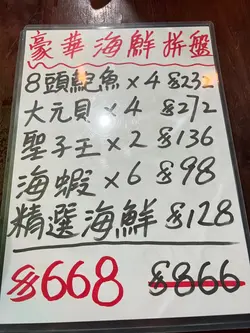 豪華海鮮拼盤
8頭鮑魚×4 $232
大元貝×4 $272
聖子王×2 $136
海蝦×6 $98
精選海鮮 $128
$668 $866